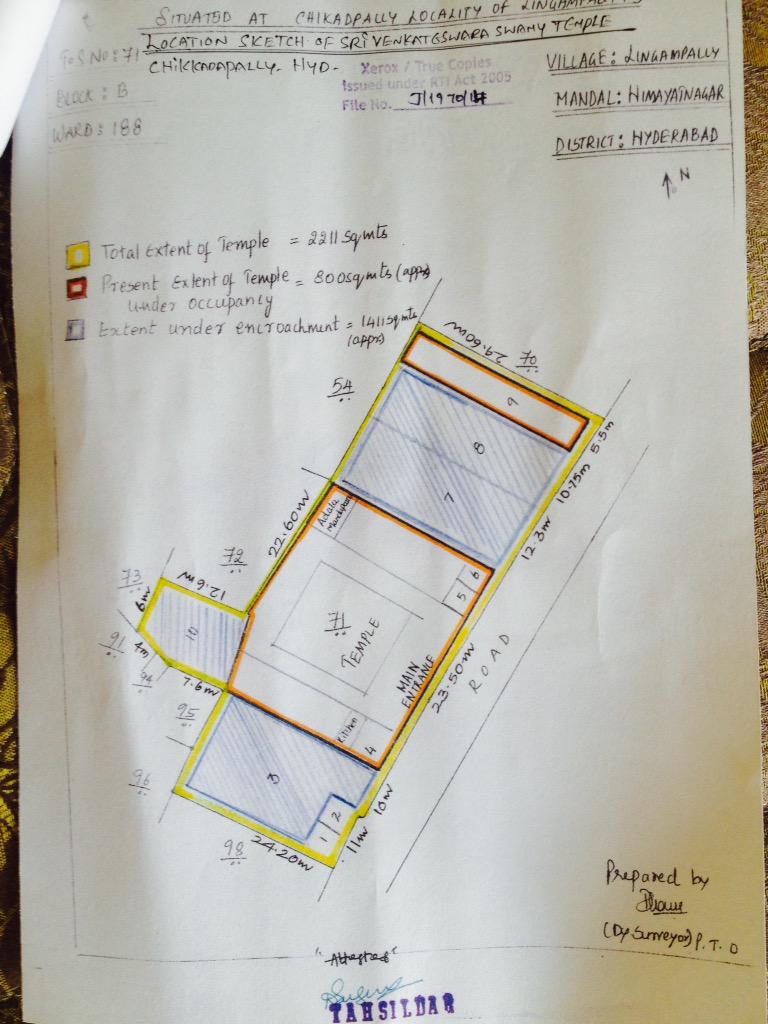 SITUATED AT CHIKADPALLY LOCALITY OF LINGAMPALLY
LOCATION SKETCH OF SRI VENKATESWARA SWAMY TEMPLE
CHIKKADAPALLY - HYD -
T.S NO: 71
BLOCK : B
WARD : 188
Xerox / True Copies
Issued under RTI Act 2005
File No. J/1970/14
VILLAGE : LINGAMPALLY
MANDAL : HIMAYATNAGAR
DISTRICT : HYDERABAD
N
Total Extent of Temple = 2211 Sq mts
Present Extent of Temple = 800 sq mts (appx)
under occupancy
Extent under encroachment = 1411 sq mts
(appx)
29.60 m
70
54
9
5.5 m
8
10.75 m
7
12.3 m
22.60 m
Adala
Mandapam
72
73
12.6 m
6 m
10
91
4 m
94
7.6 m
71
TEMPLE
5
6
MAIN
ENTRANCE
23.50 m
ROAD
Kitchen
4
95
96
3
10 m
2
1
11 m
98
24.20 m
Prepared by
(Dy. Surveyor) P. T. O
"Attested"
TAHSILDAR